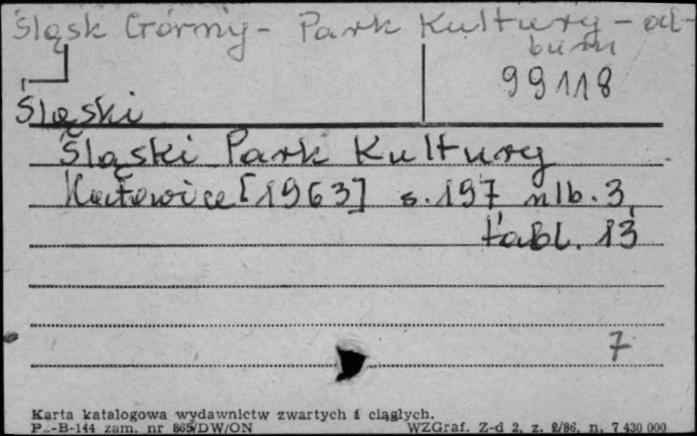 Śląsk Górny - Park Kultury - al-
bum
99118
Śląski
Śląski Park Kultury
Katowice [1963] s. 197 nlb. 3,
tabl. 13
7
Karta katalogowa wydawnictw zwartych i ciągłych.
P_-B-144 zam. nr 865/DW/ON WZGraf. Z-d 2, z. 2/86, n. 7 430 000